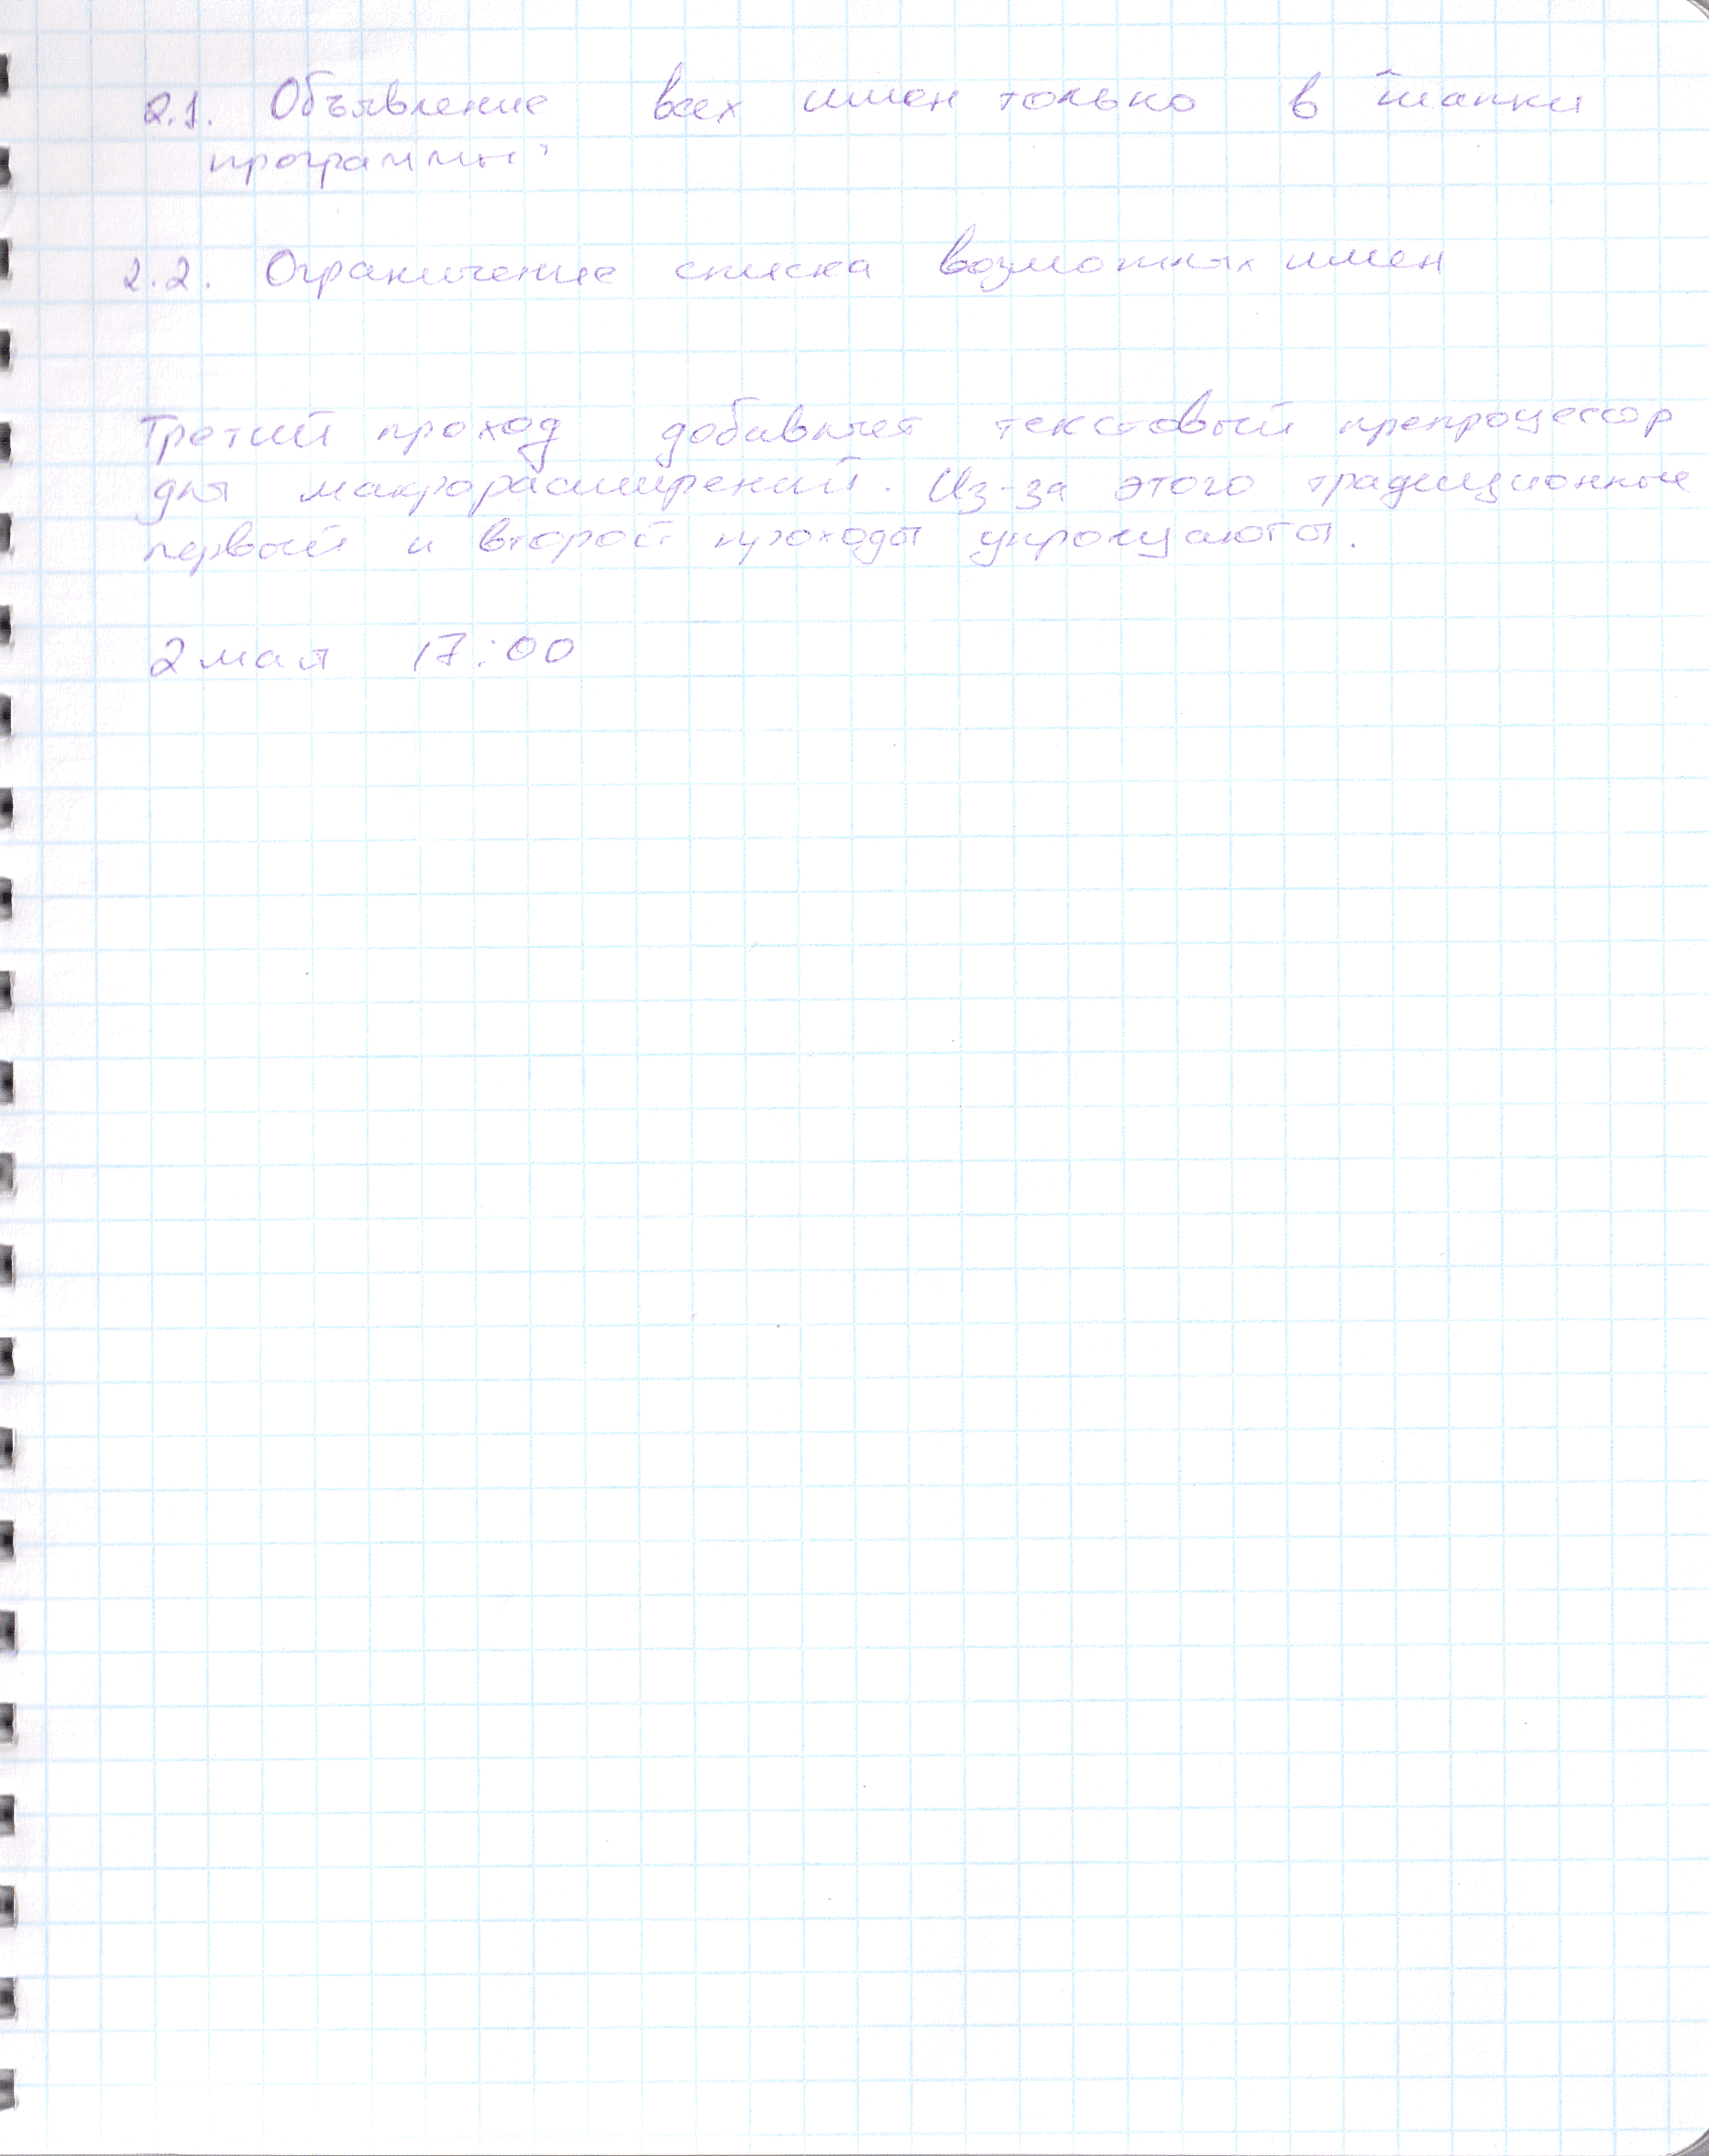 2.1. Объявление всех имен только в шапки
программы
2.2. Ограничение списка возможных имен
Третий проход добавляет текстовый препроцессор
для макрорасширений. Из-за этого традиционные
первый и второй проходы упрощаются.
2 мая 17:00